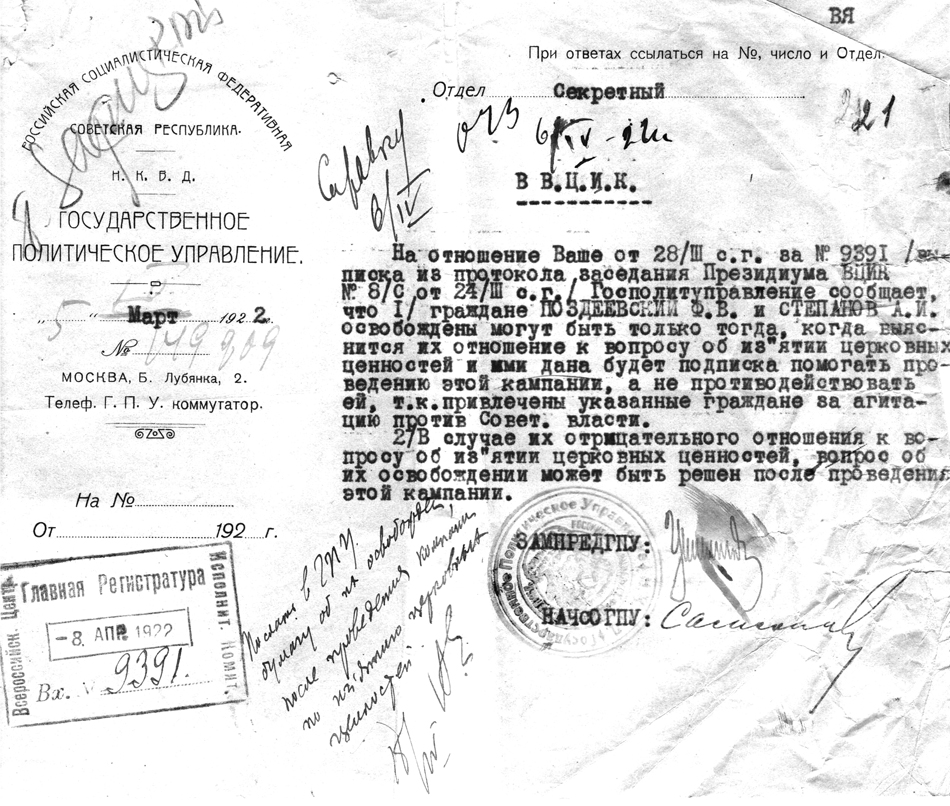 ВЯ
При ответах ссылаться на №, число и Отдел.
РОССИЙСКАЯ СОЦИАЛИСТИЧЕСКАЯ ФЕДЕРАТИВНАЯ
СОВЕТСКАЯ РЕСПУБЛИКА.
Н. К. В. Д.
ГОСУДАРСТВЕННОЕ
ПОЛИТИЧЕСКОЕ УПРАВЛЕНИЕ.
„5“ Март 1922.
№ 149909
МОСКВА, Б. Лубянка, 2.
Телеф. Г. П. У. коммутатор.
На №
От 192 г.
Отдел Секретный
Справку
6/IV
6/IV-22г
221
В В.Ц.И.К.
На отношение Ваше от 28/III с.г. за № 9391 /вы-
писка из протокола заседания Президиума ВЦИК
№ 8/С от 24/III с.г./ Госполитуправление сообщает,
что I/ граждане ПОЗДЕЕВСКИЙ Ф.В. и СТЕПАНОВ А.И.
освобождены могут быть только тогда, когда выяс-
нится их отношение к вопросу об из"ятии церковных
ценностей и ими дана будет подписка помогать про-
ведению этой кампании, а не противодействовать
ей, т.к.привлечены указанные граждане за агита-
цию против Совет. власти.
2/В случае их отрицательного отношения к во-
просу об из"ятии церковных ценностей, вопрос об
их освобождении может быть решен после проведения
этой кампании.
ЗАМПРЕДГПУ:
НАЧСОГПУ:
Государственное Политическое Управление
Всероссийск. Центр. Исполнит. Комит.
Главная Регистратура
-8 АПР 1922
Вх. № 9391.
Послать в ГПУ
бумагу об их освобожден.
после проведения кампании
по изъятию церковных
ценностей